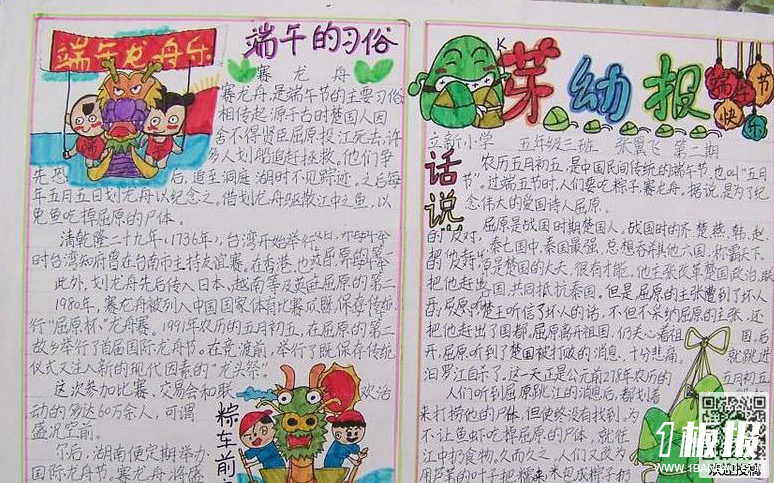 端午龙舟乐
端午的习俗
赛龙舟
赛龙舟,是端午节的主要习俗。
相传起源于古时楚国人因
舍不得贤臣屈原投江死去,许
多人划船追赶拯救。他们争
先恐
后,追至洞庭湖时不见踪迹。之后每
年五月五日划龙舟以纪念之。借划龙舟驱散江中之鱼,以
免鱼吃掉屈原的尸体。
清乾隆二十九年(1736年),台湾开始举行
时台湾知府曾在台南市主持友谊赛。在香港,也
此外,划龙舟先后传入日本、越南等及英
1980年,赛龙舟被列入中国国家体育比赛
行"屈原杯"龙舟赛。1991年农历的五月初五,在屈原的第二
故乡举行了首届国际龙舟节。在竞渡前,举行了既保存传统
仪式又注入新的现代因素的"龙头祭"
这次参加比赛、交易会和联
欢活
动的多达60万余人,可谓
盛况空前。
尔后,湖南便定期举办
国际龙舟节。赛龙舟将盛
粽车前
芽幼报
端午节
快乐
立新小学 五年级三班 张翼飞 第二期
话说
农历五月初五,是中国民间传统的端午节,也叫"五月
节"。过端五节时人们要吃粽子赛龙舟。据说,是为了纪
念伟大的爱国诗人屈原。
屈原是战国时期楚国人。战国时的齐楚燕韩、赵
秦七国中,秦国最强,总想吞并其他六国,称霸天下。
原是楚国的大夫,很有才能。他主张改革楚国政治,联
国,共同抵抗秦国。但是屈原的主张遭到了坏人
的反对。楚王听信了坏人的话,不但不采纳屈原的主张,还
把他赶出了国都。屈原离开祖国,
国。后
屈原听到了楚国被打败的消息,十分悲痛,
就跳进
汨罗江自尽了。这一天正是公元前278年农历的
五月初五
人们听到屈原跳江的消息后,都划着
来打捞他的尸体,但使终没有找到。为
不让鱼虾吃掉屈原的尸体,就往
江中扔食物。久而久之,人们又改为
用芦苇的叶子把糯米包成粽子扔
1板报
WWW.1BANBAO.COM
欢迎投稿